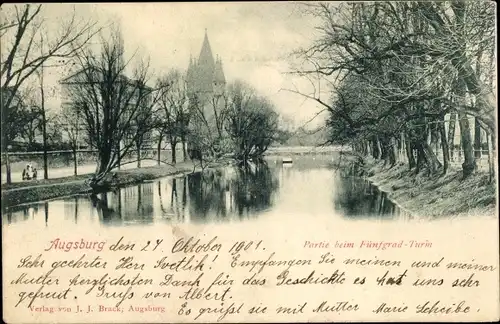 Augsburg den 24. Oktober 1901. Partie beim Fünfgrad-Turm
Sehr geehrter Herr Svetlik! Empfangen Sie meinen und meiner
Mutter herzlichsten Dank für das Geschickte es hat uns sehr
gefreut. Gruß von Albert.
Verlag von J. J. Brack, Augsburg Es grüßt sie mit Mutter Marie Scheibe.